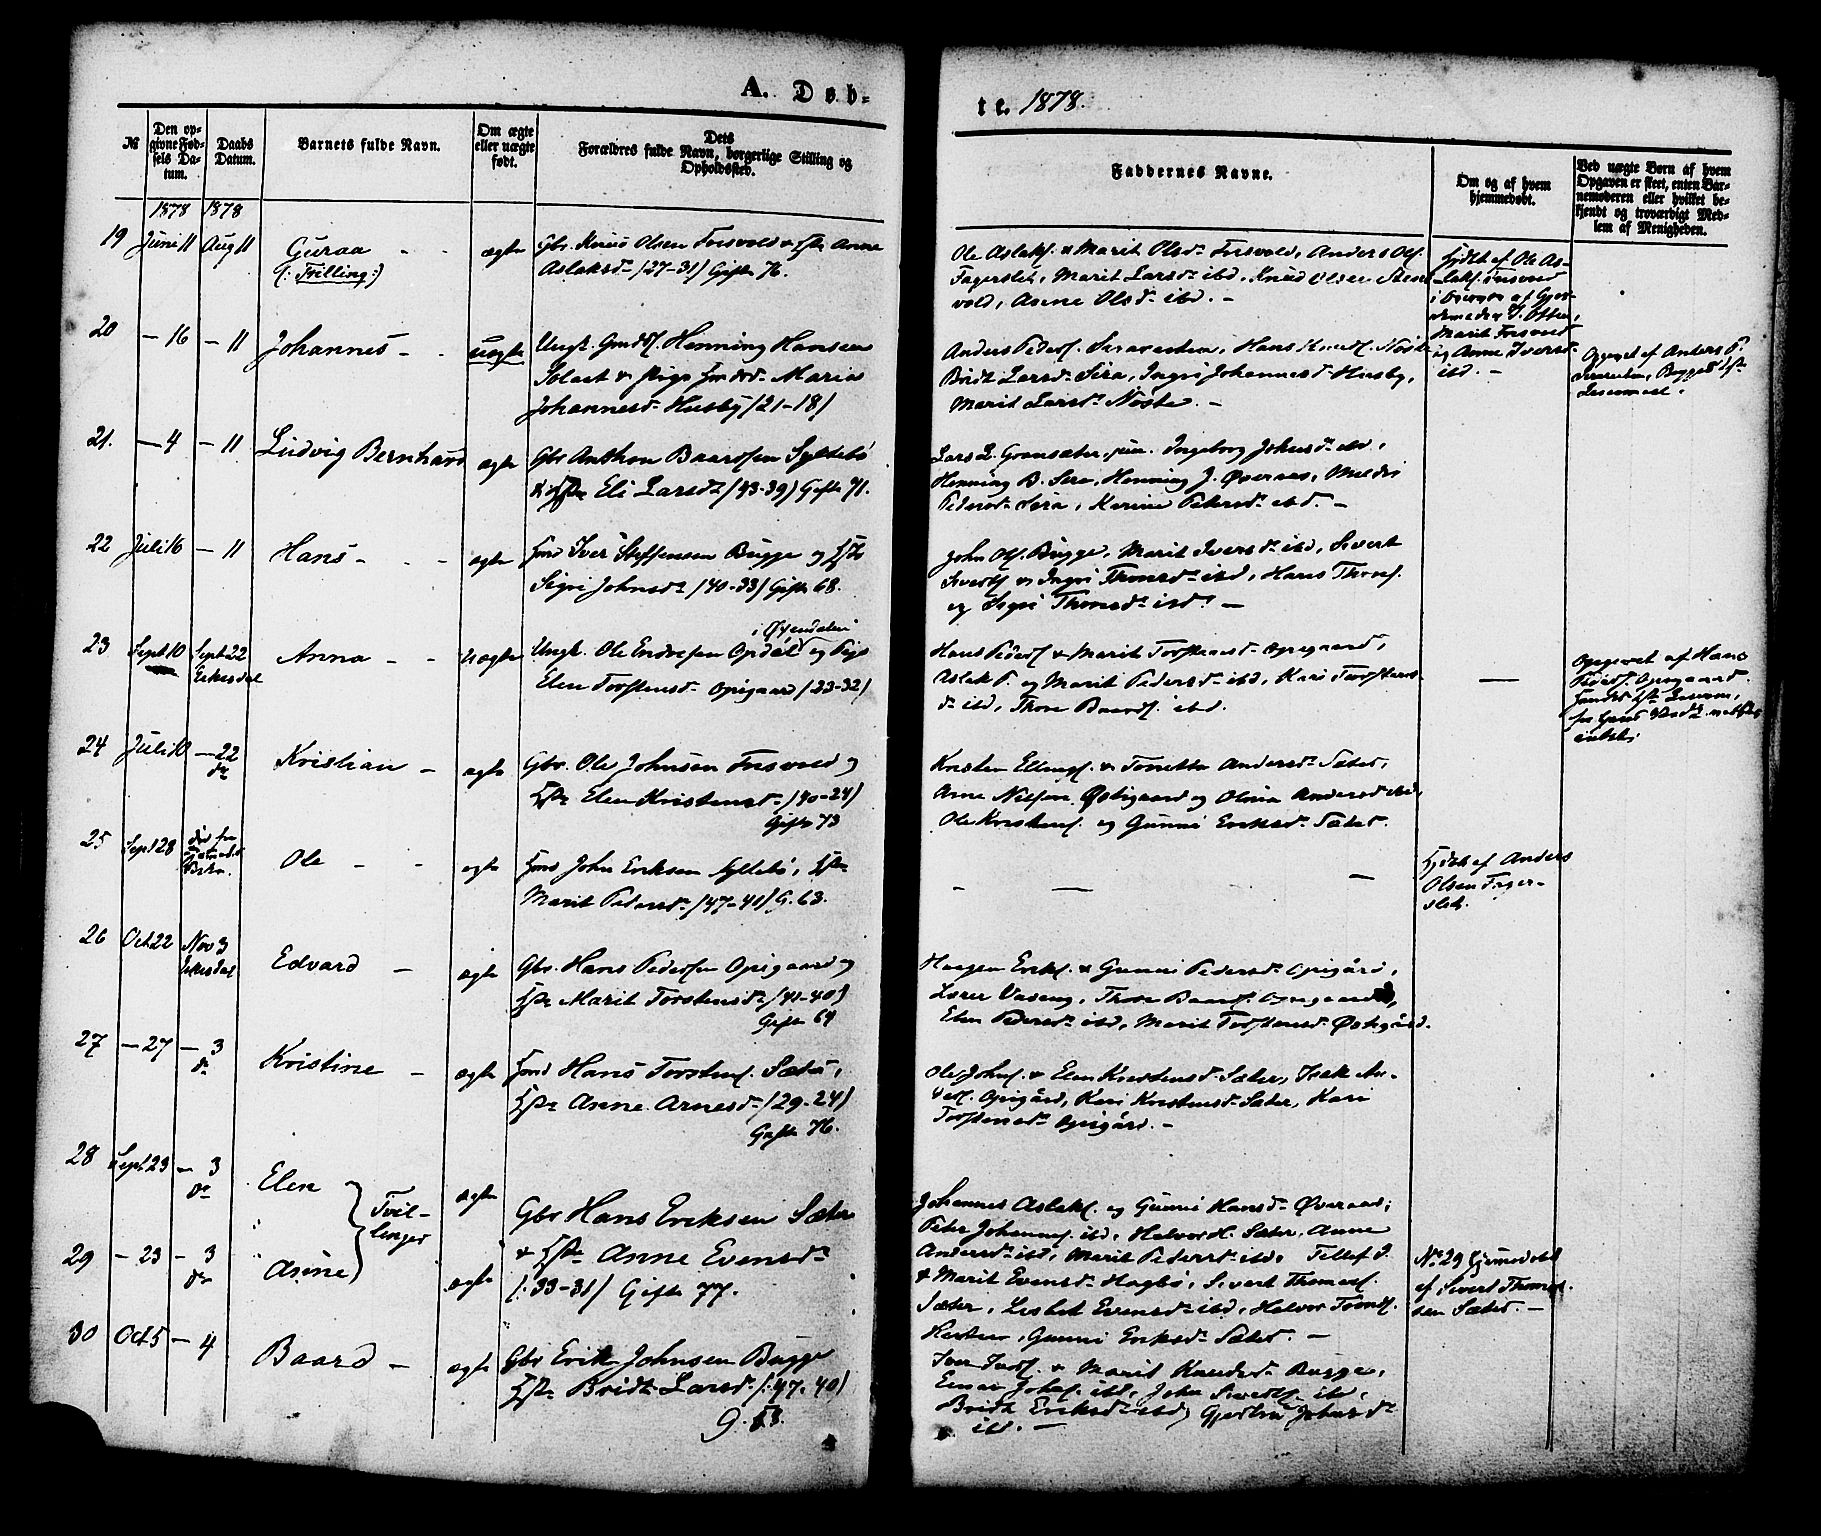 A. Døb-
te. 1878.
№
Den op-
givne Fød-
sels Da-
tum.
Daabs
Datum.
Barnets fulde Navn.
Om ægte
eller uægte
født.
Dets
Forældres fulde Navn, borgerlige Stilling og
Opholdssted.
Faddernes Navne.
Om og af hvem
hjemmedøbt.
Ved uægte Børn af hvem
Opgaven er skeet, enten Bar-
nemoderen eller hvilket be-
kjendt og troværdigt Med-
lem af Menigheden.
1878 1878
19 Juni 11 Aug 11 Guraa - - ægte Gbr. Knud Olsen Frisvold & Hstr Anne
(: Trilling :) Aslaksdr (27-31) Gifte 76.
Ole Aslaks. & Marit Olsdr Frisvold, Anders Ols.
Fagerslet, Marit Larsdr ibd, Knud Olsen
vold, Anne Olsdr ibd. -
Hjdbt af Ole As-
laks. Frisvold
Marit Frisvold
og Anne Iversdr
ibd. -
20 - 16 - 11 Johannes - - uægte Ungk. Gmds. Henning Hansen
& Pige Maria
Johannesdr Husby (21-18)
Anders Peders. Hans Nøste
Bridt Larsdr Sira, Ingri Johannesdr Husby,
Marit Larsdr Nøste. -
Opgivet af Anders P.
21. - 4 - 11 Ludvig Bernhard ægte Gbr Anthon Baardsen Syltebø
& Hstr Eli Larsdr (43-39) Gifte 71.
Lars L. Gransæter, jun. Ingeborg Johnsdr ibd,
Henning B. Sira, Henning J. Øveraas, Meldri
Pedersdr Sira, Karine Petersdr ibd. -
22 Juli 16 - 11 Hans - - - ægte Hmd Iver Steffensen Bugge og Hstr
Sigri Johnsdr (40-33) Gifte 68.
John Ols. Bugge, Marit Iversdr ibd, Sivert
Siverts. & Ingri Thoresdr ibd, Hans Thores.
og Sigri Thoresdr ibd. -
23 Sept 10 Sept 22 Anna - - Uægte Ungk. Ole Endresen Opdøl i Øxendalen og Pige
Eikesdal Elen Torstensdr Opigaard (23-32)
Hans Peders. & Marit Torstensdr Opigaard,
Aslak P. og Marit Pedersdr ibd, Kari Torstens-
dr ibd, Thore Baards. ibd.
-
Opgivet af Hans
Peders. Opigaard
24 Juli 10 - 22 Kristian - ægte Gbr. Ole Johnsen Frisvold og
do Hstr Elen Kristensdr (40-24)
Gifte 73
Kristen Ellings. & Tonetta Andersdr Sæter,
Arne Nilsen Østigaard og Olina Andersdr ibd,
Ole Kristens. og Gunni Eriksdr Sæter.
25 Sept 28 død før Ole - - ægte Hmd John Eriksen Syltebø, Hstr
Marit Pedersdr (47-41) G. 63.
- - -
Hjdbt af Anders
Olsen Fager-
slet.
26 Oct 22 Nov 3 Edvard - ægte Gbr. Hans Pedersen Opigaard og
Eikesdal Hstr Marit Torstensdr (41-40)
Gifte 64
Haagen Eriks. & Gunni Pedersdr Opigård,
Lærer Vaseng, Thore Baards. Opigaard,
Elen Pedersdr ibd, Marit Torstensdr Østigård.
27 - 27 - 3 Kristine - ægte Hmd Hans Torstens. Sæter,
do Hstr Anne Arnesdr (29-24)
Gifte 76.
Ole Johns. & Elen Kristensdr Sæter, Isak An-
ders. Opigård, Kari Kristensdr Sæter, Kari
Torstensdr Opigård. -
28 Sept 23 - 3 Elen ægte
do
Tvil-
linger
Gbr Hans Eriksen Sæter
& Hstr Anne Evensdr
29 - 23 - 3 Anne ægte (: 33-31) Gifte 77.
do
Johannes Aslaks. og Gunni Hansdr Øveraas,
Peter Johannes. ibd, Halvor H. Sæter, Anne
Andersdr ibd, Marit Pedersdr ibd, Tellef J.
& Marit Evensdr Hagbø, Sivert Thomas.
Sæter, Lisbet Evensdr ibd, Halvor
Gunni Eriksdr Sæter. -
No 29 hjemmedøbt
af Sivert Thoma-
sen Sæter. -
30 Oct 5 - 4 Baard - ægte Gbr Erik Johnsen Bugge
Hstr Bridt Larsdr (: 47-40)
G. 58.
Iver Ivers. & Marit Knudsdr Bugge,
Einar Johns. ibd, John Siverts. ibd,
Bridt Eriksdr ibd, Gjertrui Johnsdr
ibd. -